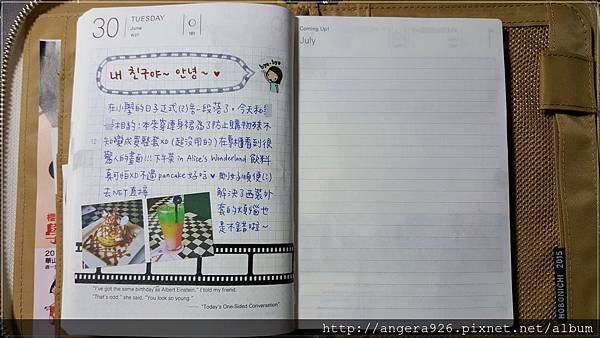 30
TUESDAY
June
W27
181
bye-bye
내 친구야~ 안녕~ ♥
在小學的日子正式(?)告一段落了。今天和
相約:本來穿連身裙為了防止購物殊不
知變成買整套XD(超沒用的)在
驚人的畫面!!!下午茶 in Alice's Wonderland 飲料
真可怕XD不過pancake好吃♥剛好順便(?)
去NET直接
解決了西裝外
套的煩惱也
是不錯啦~
"I've got the same birthday as Albert Einstein," I told my friend.
"That's odd," she said. "You look so young."
"Today's One-Sided Conversation"
Coming Up!
July
HOBONICHI 2015
http://angera926.pixnet.net/album